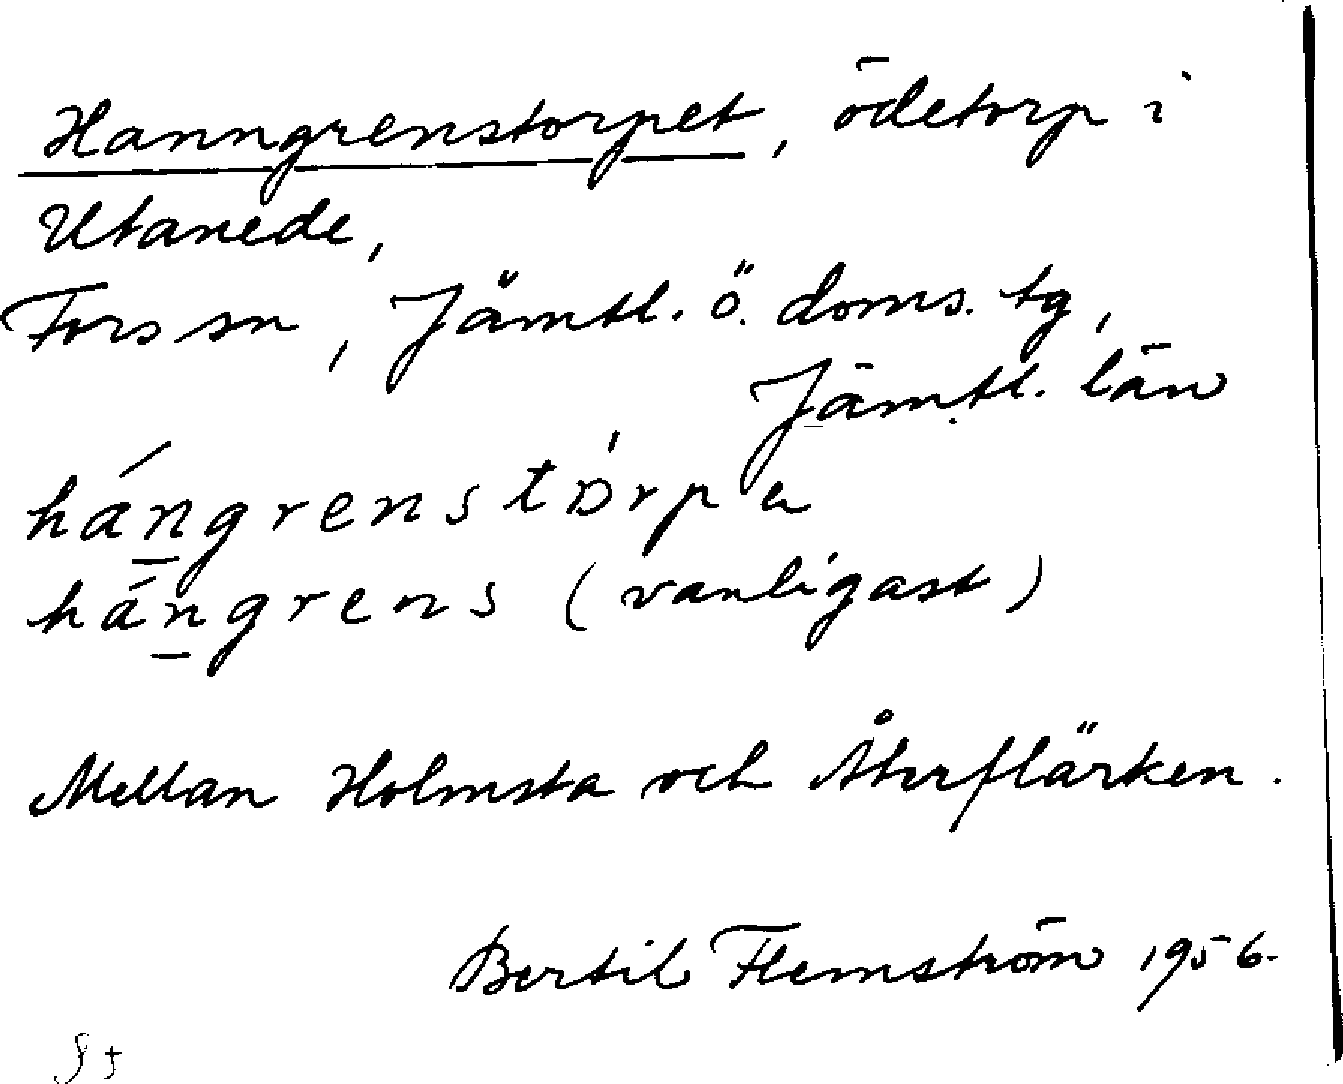 Hanngrenstorpet, ödetorp i
Utanede,
Fors sn, Jämtl. ö. doms. tg,
Jämtl. län
hángrenstòrpa
hángrens (vanligast)
Mellan Holmsta och Återflärken.
Bertil Flemström 1956.